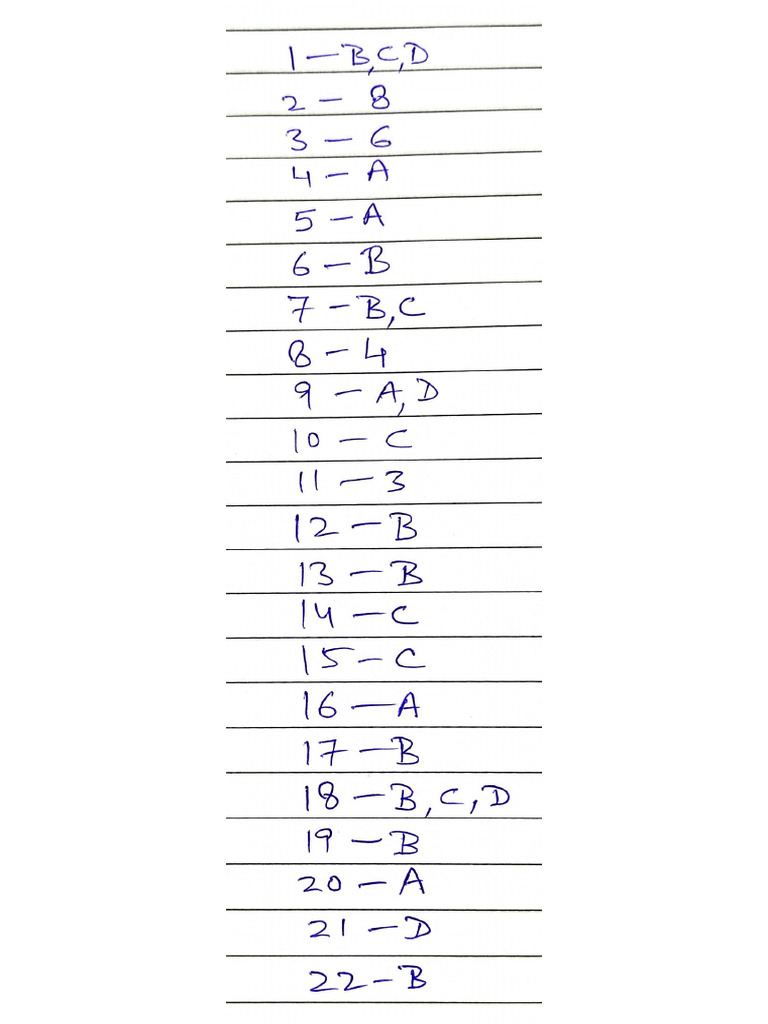 1 — B, C, D
2 — 8
3 — 6
4 — A
5 — A
6 — B
7 — B, C
8 — 4
9 — A, D
10 — C
11 — 3
12 — B
13 — B
14 — C
15 — C
16 — A
17 — B
18 — B, C, D
19 — B
20 — A
21 — D
22 — B